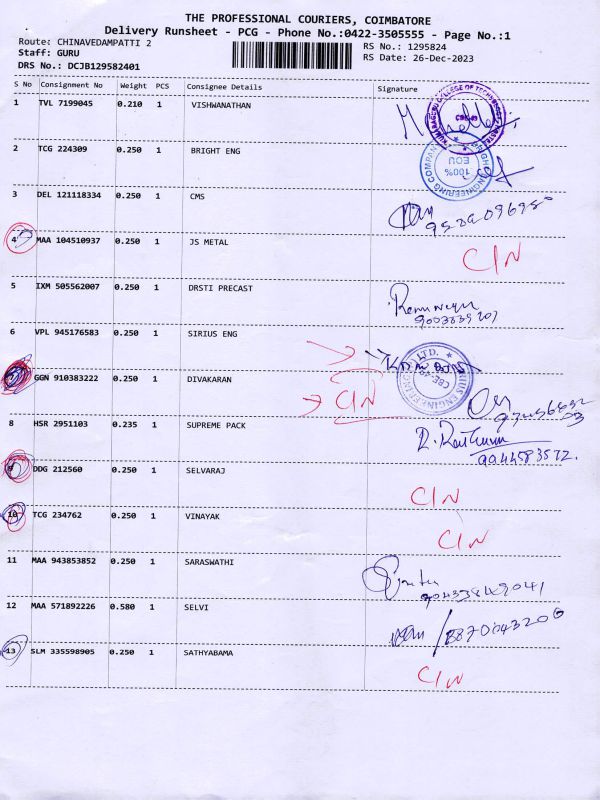 THE PROFESSIONAL COURIERS, COIMBATORE
Delivery Runsheet - PCG - Phone No.:0422-3505555 - Page No.:1
Route: CHINAVEDAMPATTI 2
Staff: GURU
DRS No.: DCJB129582401
RS No.: 1295824
RS Date: 26-Dec-2023
S No Consignment No Weight PCS Consignee Details Signature
1 TVL 7199045 0.210 1 VISHWANATHAN
2 TCG 224309 0.250 1 BRIGHT ENG
100% EOU
3 DEL 121118334 0.250 1 CMS
4 MAA 104510937 0.250 1 JS METAL C/N
5 IXM 505562007 0.250 1 DRSTI PRECAST
6 VPL 945176583 0.250 1 SIRIUS ENG
7 GGN 910383222 0.250 1 DIVAKARAN C/N
8 HSR 2951103 0.235 1 SUPREME PACK
9944583572.
9 DDG 212560 0.250 1 SELVARAJ C/N
10 TCG 234762 0.250 1 VINAYAK C/N
11 MAA 943853852 0.250 1 SARASWATHI
12 MAA 571892226 0.580 1 SELVI
13 SLM 335598905 0.250 1 SATHYABAMA C/N